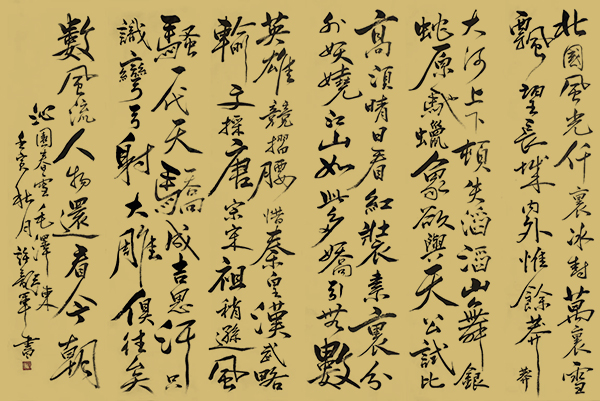 北國風光仟裏冰封萬裏雪
飄望長城內外惟餘莽莽
大河上下頓失滔滔山舞銀
蛇原馳蠟象欲與天公試比
高須晴日看紅裝素裹分
外妖嬈江山如此多嬌引無數
英雄競摺腰惜秦皇漢武略
輸文採唐宗宋祖稍遜風
騷一代天驕成吉思汗只
識彎弓射大雕俱往矣
數風流人物還看今朝
沁園春雪毛澤東
壬寅秋月許軍書